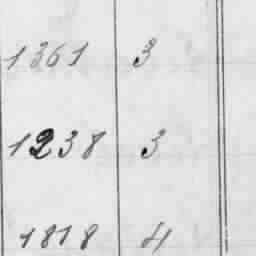 1361 3
1238 3
1818 4